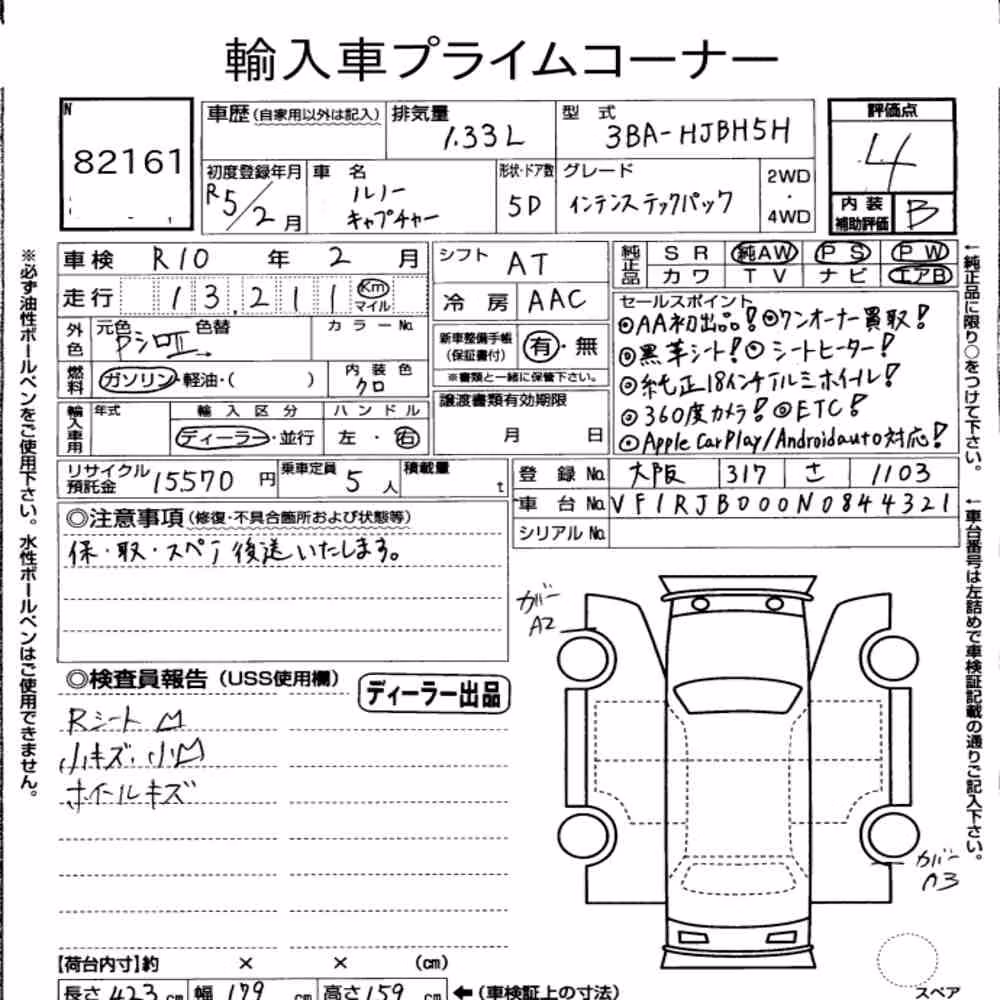 輸入車プライムコーナー
N
82161
車歴(自家用以外は記入)
排気量
1.33L
型 式
3BA-HJBH5H
評価点
4
内装補助評価
B
初度登録年月
R5/2月
車 名
ルノー
キャプチャー
形状・ドア数
5D
グレード
インテンス テックパック
2WD
・
4WD
車検 R10 年 2 月
走行 13,211 Km マイル
外色 元色 色替
パシロⅡ
カラーNo.
燃料 ガソリン・軽油・( )
内装色
クロ
輸入車用 年式
輸入区分
ディーラー・並行
ハンドル
左・右
リサイクル預託金 15570 円
乗車定員 5 人
積載量 t
シフト AT
冷房 AAC
新車整備手帳
(保証書付)
有・無
※書類と一緒に保管下さい。
譲渡書類有効期限
月 日
純正品
SR 純AW PS PW
カワ TV ナビ エアB
セールスポイント
◎AA初出品!◎ワンオーナー買取!
◎黒革シート!◎シートヒーター!
◎純正18インチアルミホイール!
◎360度カメラ!◎ETC!
◎Apple CarPlay/Androidauto対応!
登録No. 大阪 317 さ 1103
車台No. VF1RJB000N0844321
シリアルNo.
◎注意事項(修復・不具合箇所および状態等)
保・取・スペア後送いたします。
◎検査員報告(USS使用欄)
ディーラー出品
Rシート凹
小キズ・小凹
ホイールキズ
カバー
A2
カバー
A3
スペア
【荷台内寸】約 × × (cm)
長さ 423 cm 幅 179 cm 高さ 159 cm ←(車検証上の寸法)
※必ず油性ボールペンをご使用下さい。水性ボールペンはご使用できません。
←純正品に限り○をつけて下さい。
←車台番号は左詰めで車検証記載の通りご記入下さい。